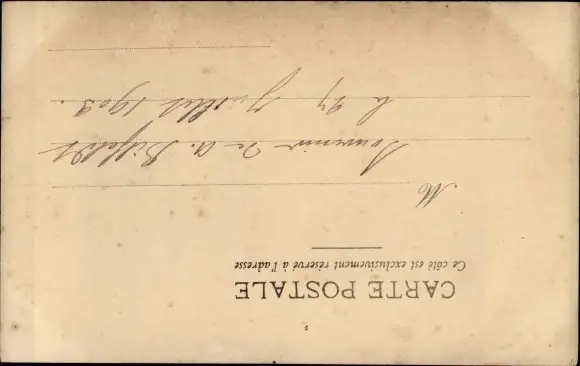 CARTE POSTALE
Ce côté est exclusivement réservé à l'adresse
M
Souvenir de A.
le 27 Juillet 1903.